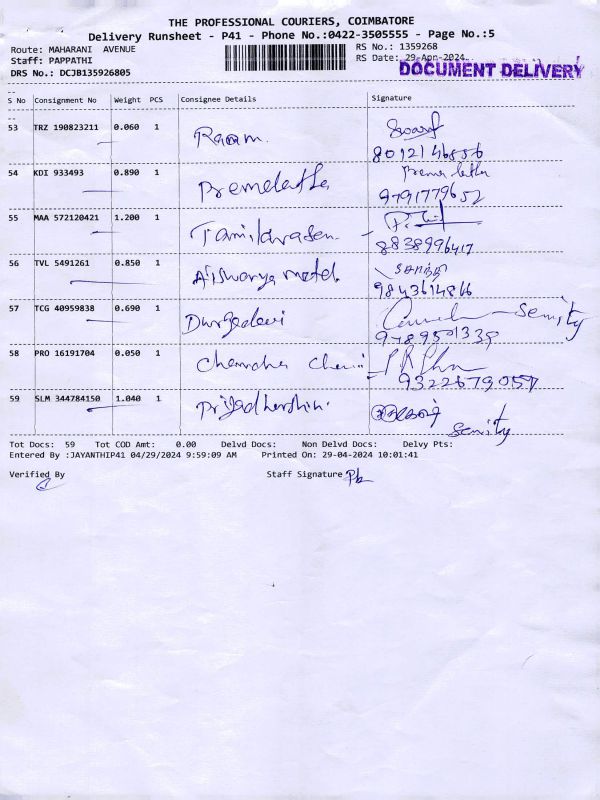 THE PROFESSIONAL COURIERS, COIMBATORE
Delivery Runsheet - P41 - Phone No.:0422-3505555 - Page No.:5
Route: MAHARANI AVENUE RS No.: 1359268
Staff: PAPPATHI RS Date: 29-Apr-2024
DRS No.: DCJB135926805 DOCUMENT DELIVERY
S No Consignment No Weight PCS Consignee Details Signature
53 TRZ 190823211 0.060 1 Raam
54 KDI 933493 0.890 1 Premalatha Prema latha
9791779652
55 MAA 572120421 1.200 1 Tamilarasan
8838996417
56 TVL 5491261 0.850 1 Aiswarya metal சாந்தி
9843614866
57 TCG 40959838 0.690 1 Durgadevi Semity
9789501339
58 PRO 16191704 0.050 1
9322679057
59 SLM 344784150 1.040 1 Priyadharshini
Semity
Tot Docs: 59 Tot COD Amt: 0.00 Delvd Docs: Non Delvd Docs: Delvy Pts:
Entered By :JAYANTHIP41 04/29/2024 9:59:09 AM Printed On: 29-04-2024 10:01:41
Verified By Staff Signature